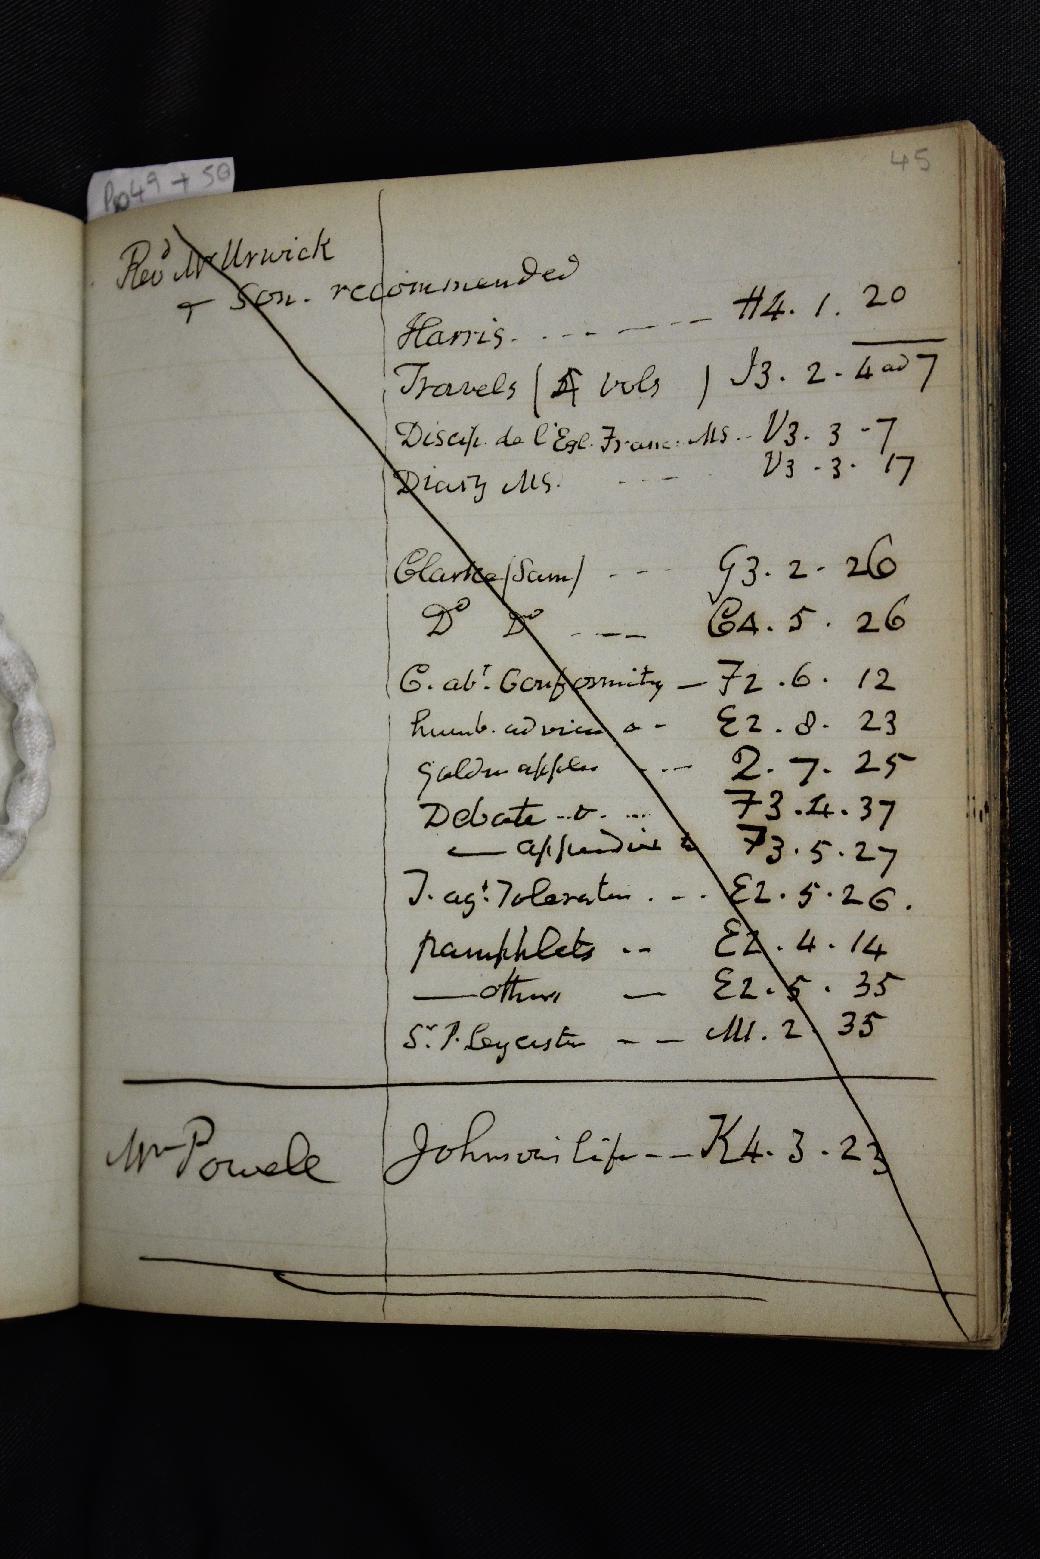 45
Pp 49 + 50
Revd Mr Urwick
+ Son. recommended
Harris. - - - - - H4. 1. 20
Travels (4 vols) J3. 2. 4 ad 7
Discip. de l'Egl. Franc. MS. - V3. 3 - 7
Diary MS. - - - V3. 3. 17
Clarke (Sam) - - - G3. 2. 26
Do Do - - - C4. 5. 26
C. abt. Conformity — F2. 6. 12
humb. advice - E2. 8. 23
Golden apples - - - 2. 7. 25
Debate - - F3. 4. 37
— appendix F3. 5. 27
T. agt. Toleration . - - E2. 5. 26.
pamphlets - - E2. 4. 14
— others — E2. 5. 35
Sr. P. Leycester - - M1. 2. 35
Mr Powell Johnson's life - - K4. 3. 23